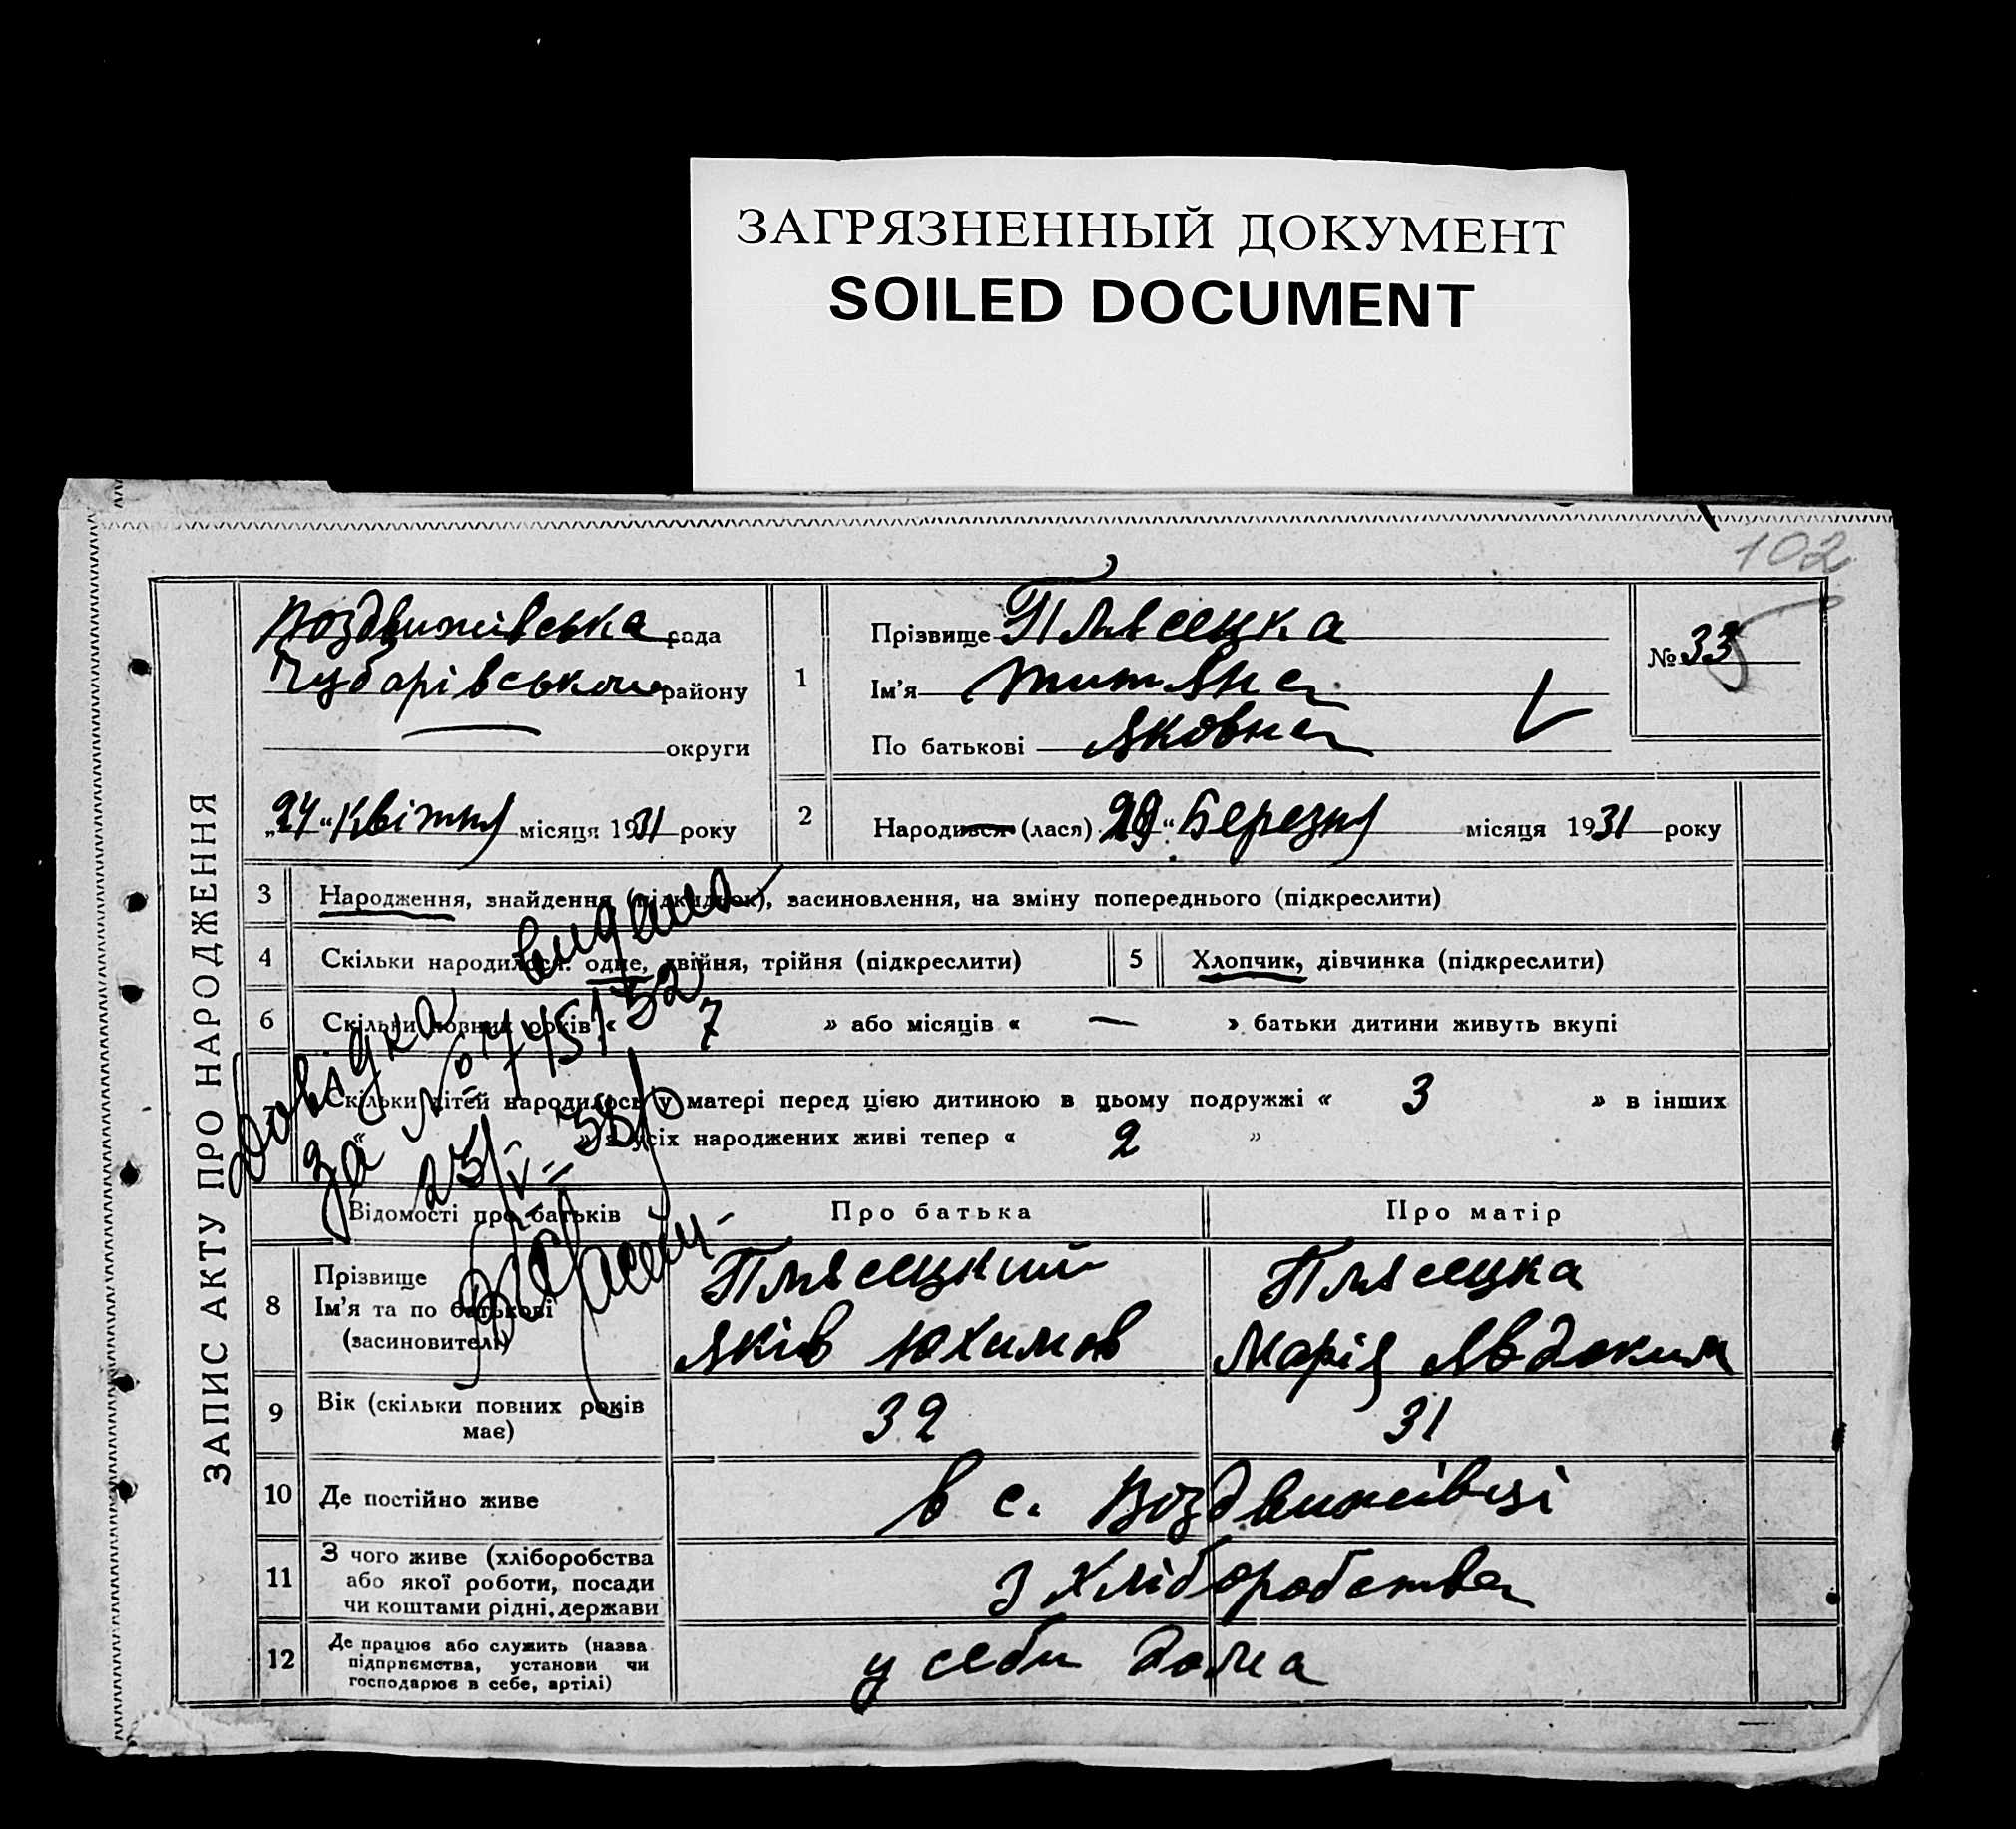 ЗАГРЯЗНЕННЫЙ ДОКУМЕНТ
SOILED DOCUMENT
102
ЗАПИС АКТУ ПРО НАРОДЖЕННЯ
Воздвижівська рада
Чубарівського району
округи
„24“ Квітня місяця 1931 року
1
Прізвище Плясецка
Ім'я Титяна
По батькові Яковна
№ 33
2
Народився (лася) „29“ Березня місяця 1931 року
3 Народження, знайдення (підкидьок), засиновлення, на зміну попереднього (підкреслити)
4 Скільки народилося: одне, двійня, трійня (підкреслити)
5 Хлопчик, дівчинка (підкреслити)
6 Скільки повних років « 7 » або місяців « — » батьки дитини живуть вкупі
Скільки дітей народилось у матері перед цією дитиною в цьому подружжі « 3 » в інших
« » з усіх народжених живі тепер « 2 »
Довідка видана
за №
Відомості про батьків
Про батька
Про матір
8 Прізвище
Ім'я та по батькові
(засиновителі)
Плясецкий
Яків Юхимов
Плясецка
Марія Явдоким
9 Вік (скільки повних років
має)
32
31
10 Де постійно живе
в с. Воздвижівці
11 З чого живе (хліборобства
або якої роботи, посади
чи коштами рідні, держави
з хліборобства
12 Де працює або служить (назва
підприємства, установи чи
господарює в себе, артілі)
у себи дома